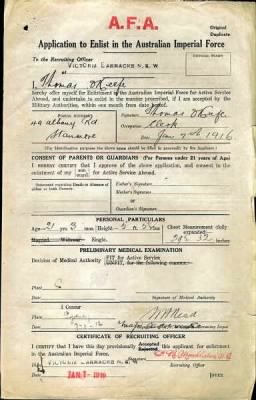 A.F.A.
Original
Duplicate
Application to Enlist in the Australian Imperial Force
To the Recruiting Officer
VICTORIA BARRACKS N.S.W
I, Thomas O'Keefe
hereby offer myself for Enlistment in the Australian Imperial Force for Active Service
Abroad, and undertake to enlist in the manner prescribed, if I am accepted by the
Military Authorities, within one month from date hereof.
POSTAL ADDRESS
Signature Thomas O'Keefe
Albany Rd
Occupation Clerk
Stanmore
Date Jan 1916
(For identification purposes the above must be filled in personally by the Applicant)
CONSENT OF PARENTS OR GUARDIANS (For Persons under 21 years of Age)
I HEREBY CERTIFY that I approve of the above application, and consent to the
enlistment of my son for Active Service Abroad.
ward
Father's Signature
Mother's Signature
or
Guardian's Signature
PERSONAL PARTICULARS
Age 21 yrs 3 mos. Height 5 ft ins. Chest Measurement fully expanded ins.
Married, Widower Single.
PRELIMINARY MEDICAL EXAMINATION
Decision of Medical Authority FIT for Active Service
UNFIT, for the following causes
Date
Signature of Medical Authority
I Concur
Sydney
Recruiting Depot
CERTIFICATE OF RECRUITING OFFICER
I CERTIFY that I have this day provisionally Accepted this applicant for enlistment
Rejected
in the Australian Imperial Force.
VICTORIA BARRACKS N.S.W
Recruiting Officer
JAN 1916